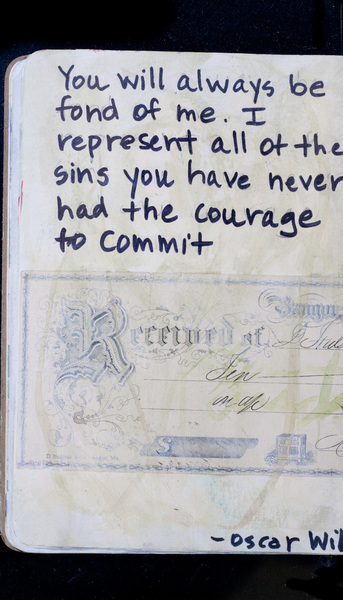 You will always be
fond of me. I
represent all of the
sins you have never
had the courage
to commit
Received of
Ten
$
-Oscar Wil